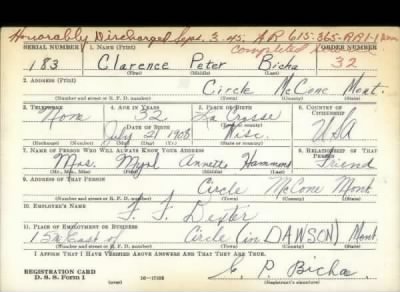 Honorably Discharged Sept. 3-45. AR 615-365-RR1-1
SERIAL NUMBER 1. NAME (Print) ORDER NUMBER
183 Clarence Peter Bicha 32
(First) (Middle) (Last)
2. ADDRESS (Print)
Circle McCone Mont.
(Number and street or R. F. D. number) (Town) (County) (State)
3. TELEPHONE 4. AGE IN YEARS 5. PLACE OF BIRTH 6. COUNTRY OF CITIZENSHIP
None 32 La Crosse
DATE OF BIRTH
July 21 1908 Wisc. USA
(Exchange) (Number) (Mo.) (Day) (Yr.) (State or country)
7. NAME OF PERSON WHO WILL ALWAYS KNOW YOUR ADDRESS 8. RELATIONSHIP OF THAT PERSON
Mrs. Annette Hammond Friend
(Mr., Mrs., Miss) (First) (Middle) (Last)
9. ADDRESS OF THAT PERSON
Circle McCone Mont
(Number and street or R. F. D. number) (Town) (County) (State)
10. EMPLOYER'S NAME
F. F. Dexter
11. PLACE OF EMPLOYMENT OR BUSINESS
East of Circle (in DAWSON) Mont
(Number and street or R. F. D. number) (Town) (County) (State)
I AFFIRM THAT I HAVE VERIFIED ABOVE ANSWERS AND THAT THEY ARE TRUE.
REGISTRATION CARD
D. S. S. Form 1 C. P. Bicha
(Registrant's signature)